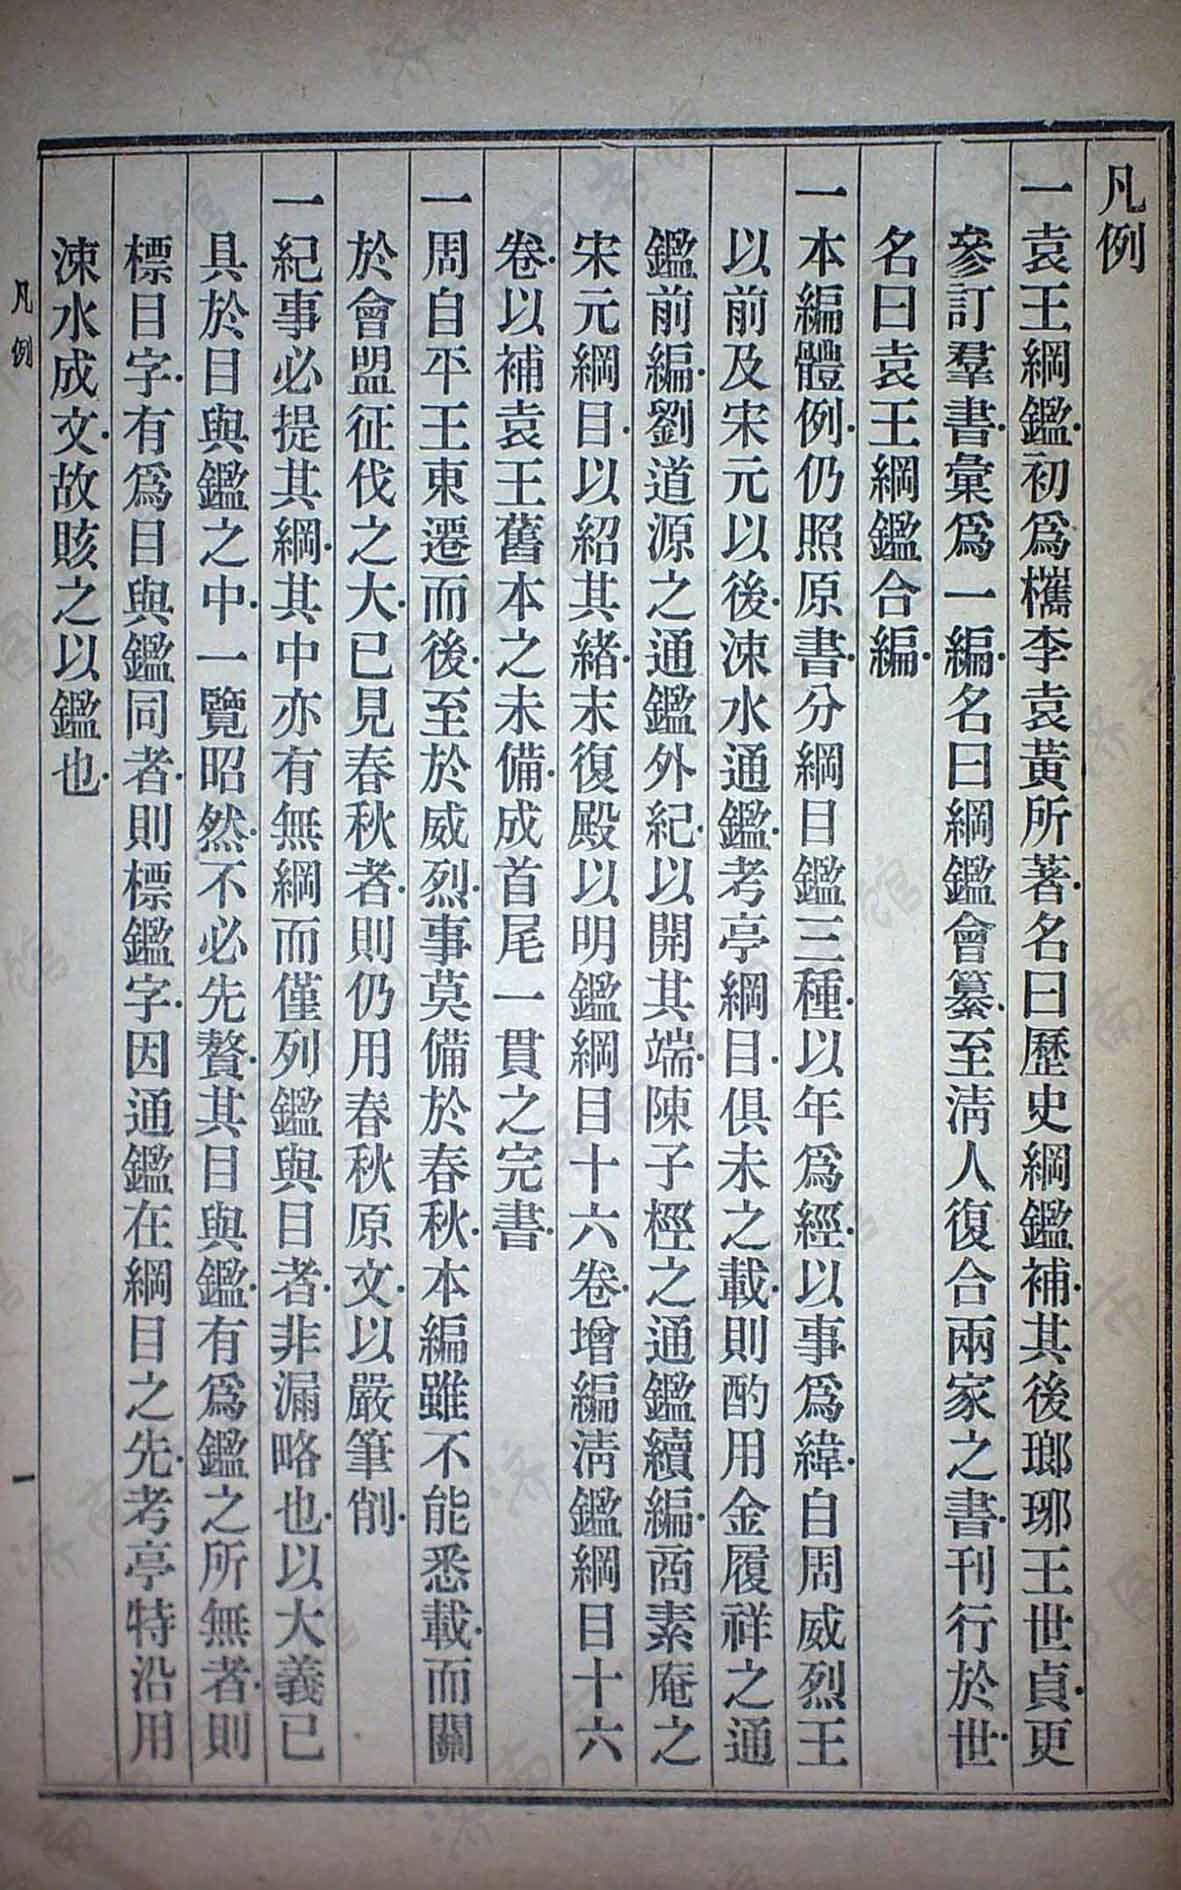 凡例
一袁王綱鑑．初爲檇李袁黃所著．名曰歷史綱鑑補．其後瑯琊王世貞．更
參訂羣書．彙爲一編．名曰綱鑑會纂．至淸人復合兩家之書．刊行於世．
名曰袁王綱鑑合編．
一本編體例．仍照原書．分綱目鑑三種．以年爲經．以事爲緯．自周威烈王
以前及宋元以後．涑水通鑑．考亭綱目．俱未之載．則酌用金履祥之通
鑑前編．劉道源之通鑑外紀．以開其端．陳子桱之通鑑續編．商素庵之
宋元綱目．以紹其緒．末復殿以明鑑綱目十六卷．增編淸鑑綱目十六
卷．以補袁王舊本之未備．成首尾一貫之完書．
一周自平王東遷而後．至於威烈．事莫備於春秋．本編雖不能悉載．而關
於會盟征伐之大．已見春秋者．則仍用春秋原文．以嚴筆削．
一紀事必提其綱．其中亦有無綱而僅列鑑與目者．非漏略也．以大義已
具於目與鑑之中．一覽昭然．不必先贅．其目與鑑．有爲鑑之所無者．則
標目字．有爲目與鑑同者．則標鑑字．因通鑑在綱目之先．考亭特沿用
涑水成文．故賅之以鑑也．
凡例
一